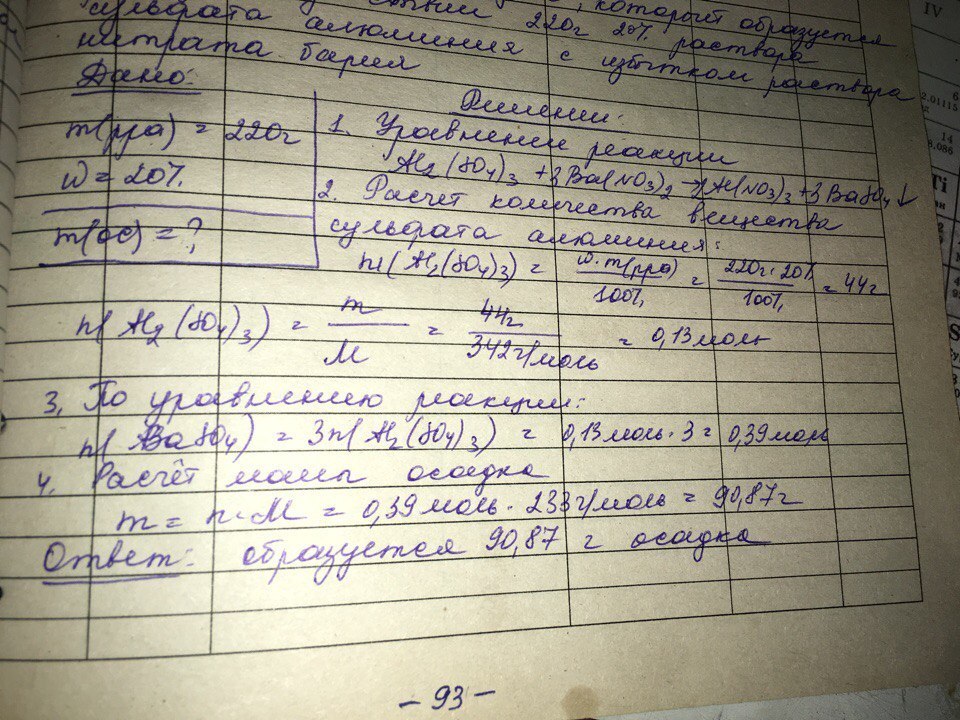 , который образуется
220г 20% раствора
сульфата алюминия с избытком раствора
нитрата бария
Дано:
m(рра) = 220г
W = 20%
m(ос) = ?
Решение:
1. Уравнение реакции
Al2(SO4)3 + 3Ba(NO3)2 → 2Al(NO3)3 + 3BaSO4↓
2. Расчет количества вещества
сульфата алюминия:
m(Al2(SO4)3) = W·m(рра) / 100% = 220г·20% / 100% = 44г
n(Al2(SO4)3) = m / M = 44г / 342г/моль = 0,13моль
3. По уравнению реакции:
n(BaSO4) = 3n(Al2(SO4)3) = 0,13моль·3 = 0,39моль
4. Расчёт массы осадка
m = n·M = 0,39моль·233г/моль = 90,87г
Ответ: образуется 90,87 г осадка
- 93 -
IV
6
2.01115
14
8.086
Ti